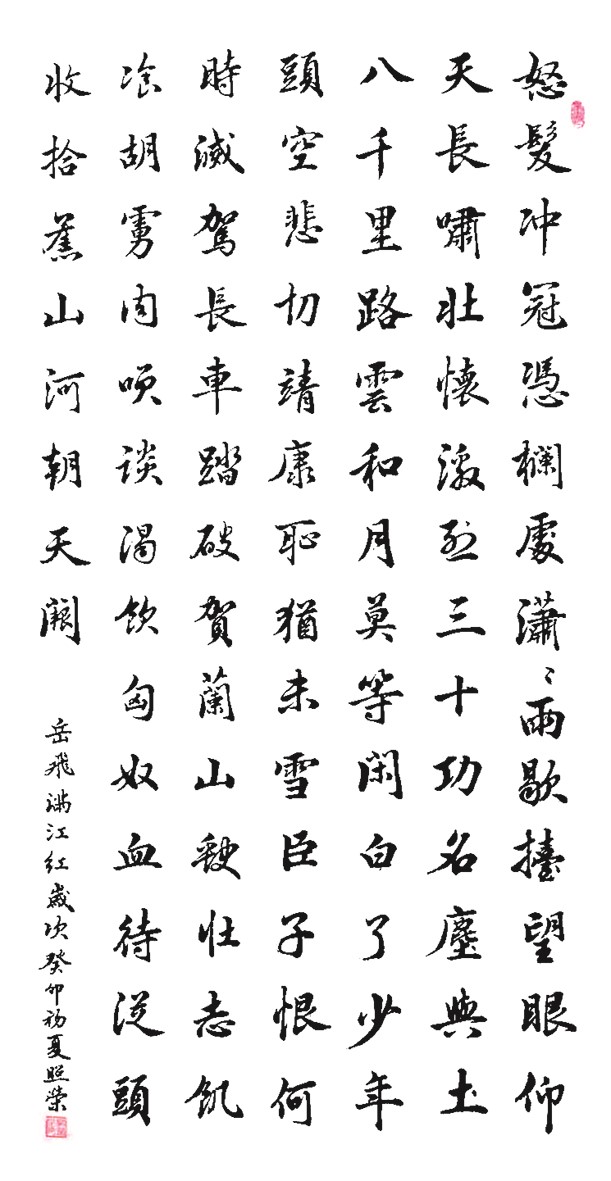 怒髮冲冠憑欄處瀟〻雨歇擡望眼仰
天長嘯壯懷激烈三十功名塵與土
八千里路雲和月莫等閑白了少年
頭空悲切靖康恥猶未雪臣子恨何
時滅駕長車踏破賀蘭山缺壯志飢
飡胡虜肉笑談渴飲匈奴血待從頭
收拾舊山河朝天闕
岳飛滿江紅歲次癸卯初夏照榮